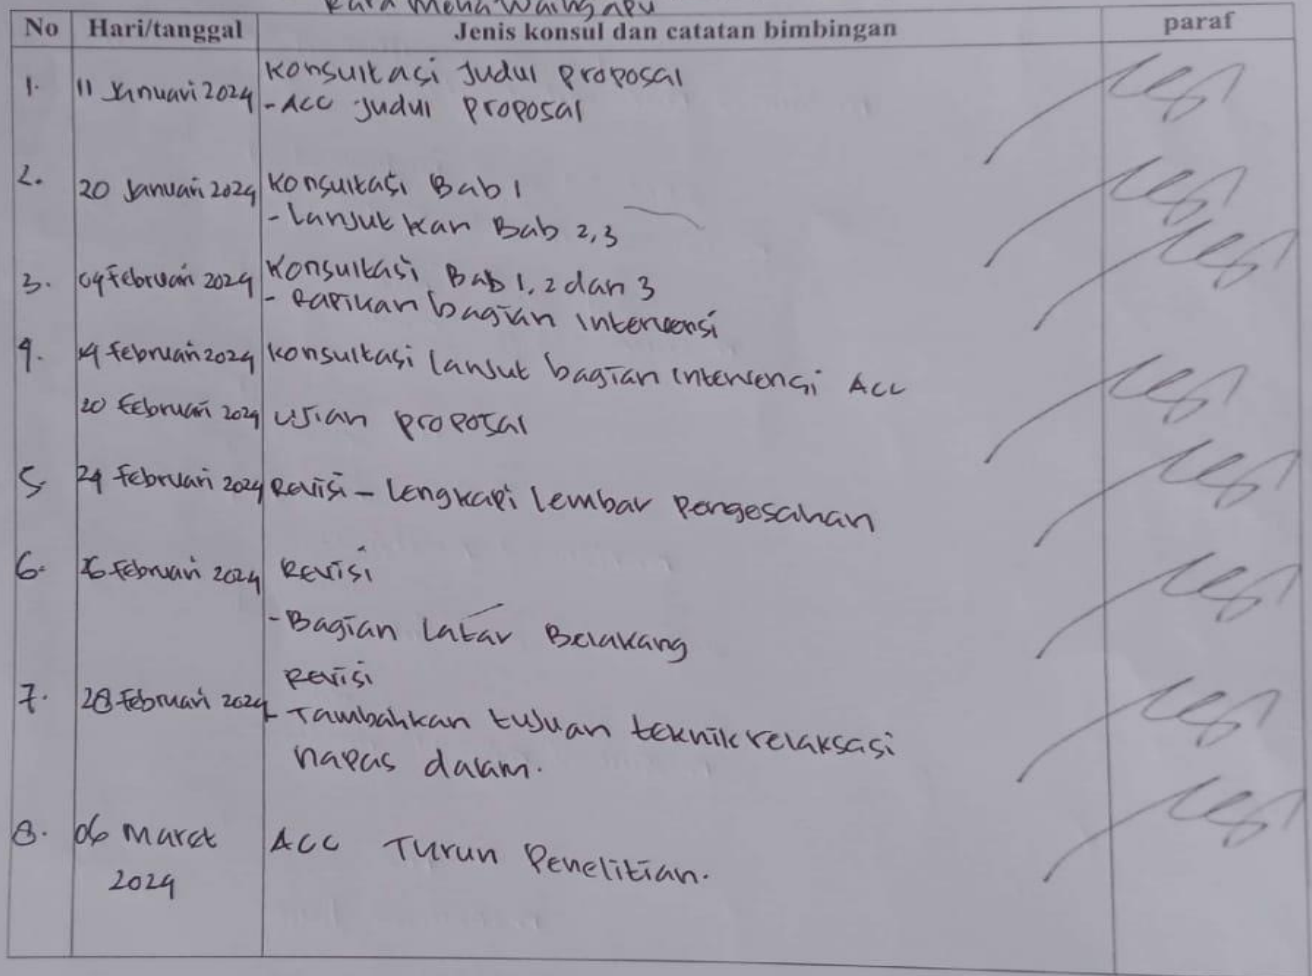 Rara Meha Waingapu
No Hari/tanggal Jenis konsul dan catatan bimbingan paraf
1. 11 Januari 2024 Konsultasi Judul Proposal
- ACC Judul Proposal
2. 20 Januari 2024 Konsultasi Bab 1
- Lanjutkan Bab 2,3
3. 09 Februari 2024 Konsultasi Bab 1, 2 dan 3
- Rapikan bagian intervensi
4. 14 Februari 2024 Konsultasi lanjut bagian intervensi ACC
20 Februari 2024 Ujian proposal
5. 24 Februari 2024 Revisi - Lengkapi lembar Pengesahan
6. 26 Februari 2024 Revisi
- Bagian Latar Belakang
7. 28 Februari 2024 Revisi
- Tambahkan tujuan teknik relaksasi
napas dalam.
8. 06 Maret ACC Turun Penelitian.
2024